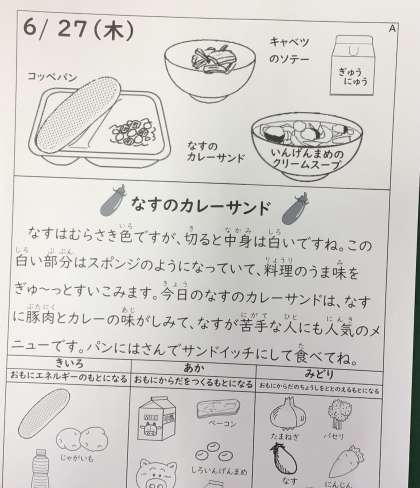 A
6/27(木)
キャベツ
のソテー
ぎゅう
にゅう
コッペパン
なすの
カレーサンド
いんげんまめの
クリームスープ
なすのカレーサンド
なすはむらさき色ですが、切ると中身は白いですね。この
白い部分はスポンジのようになっていて、料理のうま味を
ぎゅ~っとすいこみます。今日のなすのカレーサンドは、なす
に豚肉とカレーの味がしみて、なすが苦手な人にも人気のメ
ニューです。パンにはさんでサンドイッチにして食べてね。
きいろ
あか
みどり
おもにエネルギーのもとになる
おもにからだをつくるもとになる
おもにからだのちょうしをととのえるもとになる
じゃがいも
MILK
ベーコン
しろいんげんまめ
たまねぎ
パセリ
なす
にんじん